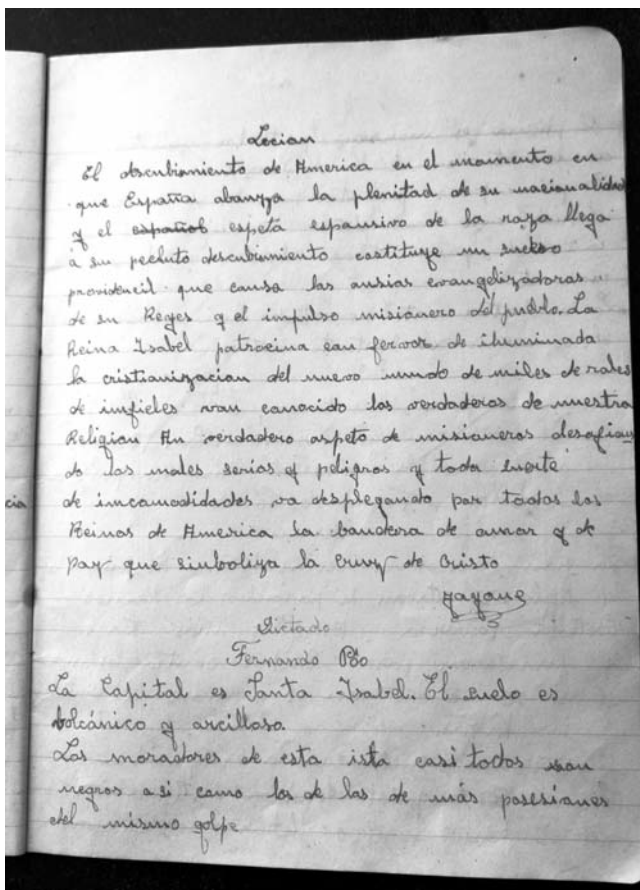 Lecion
El descubrimiento de America en el momento en
que España abanza la plenitad de su nacionalidad
y el español espeta espansivo de la raza llega
a su pechuto descubrimiento costituye un suceso
providencil que causa las ansias evangelizadoras
de su Reyes y el impulso misionero del pueblo. La
Reina Isabel patrocina con fervor de iluminada
la cristianizacion del nuevo mundo de miles de rales
de imfieles van conocido los verdaderos de nuestra
Religion Un verdadero aspeto de misioneros desafian
do los males serios y peligros y toda suerte
de imcomodidades va desplegando por todos los
Reinos de America la bandera de amor y de
paz que simboliza la cruz de Cristo
Dictado
Fernando Póo
La Capital es Santa Isabel. El suelo es
bolcánico y arcilloso.
Los moradores de esta ista casi todos son
negros a si como los de las de más posesiones
del mismo golfe
cia